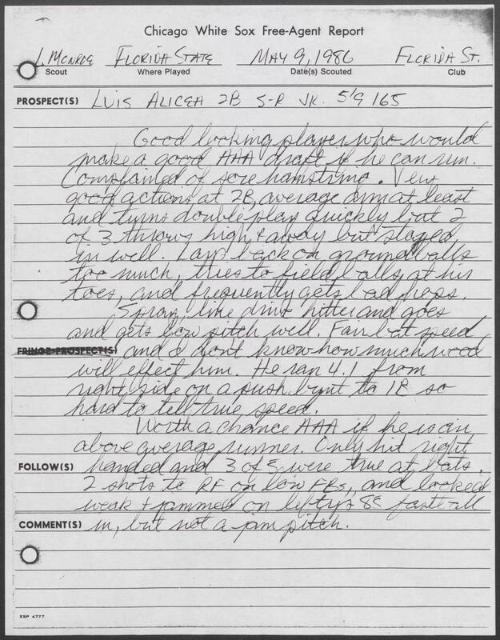 Chicago White Sox Free-Agent Report
L. Monroe Florida State May 9, 1986 Florida St.
Scout Where Played Date(s) Scouted Club
PROSPECT(S) Luis Alicea 2B S-R Jr. 5/9 165
Good looking player who would
make a good AAA draft if he can run.
Complained of sore hamstring. Very
good actions at 2B, average arm at least
and turns double play quickly but 2
of 3 throws high & away but stayed
in well. Lays back on ground balls
too much, tries to field balls at his
toes, and frequently gets bad hops.
Spray, line drive hitter and goes
and gets low pitch well. Fair bat speed
FRINGE PROSPECT(S) and I don't know how much wood
will effect him. He ran 4.1 from
right side on a push bunt to 1B so
hard to tell true speed.
Worth a chance AAA if he is an
above average runner. Only hit right
FOLLOW(S) handed and 3 of 5 were true at bats.
2 shots to RF on low FBs, and looked
weak & jammed on lefty's 85 fastball
COMMENT(S) in, but not a jam pitch.